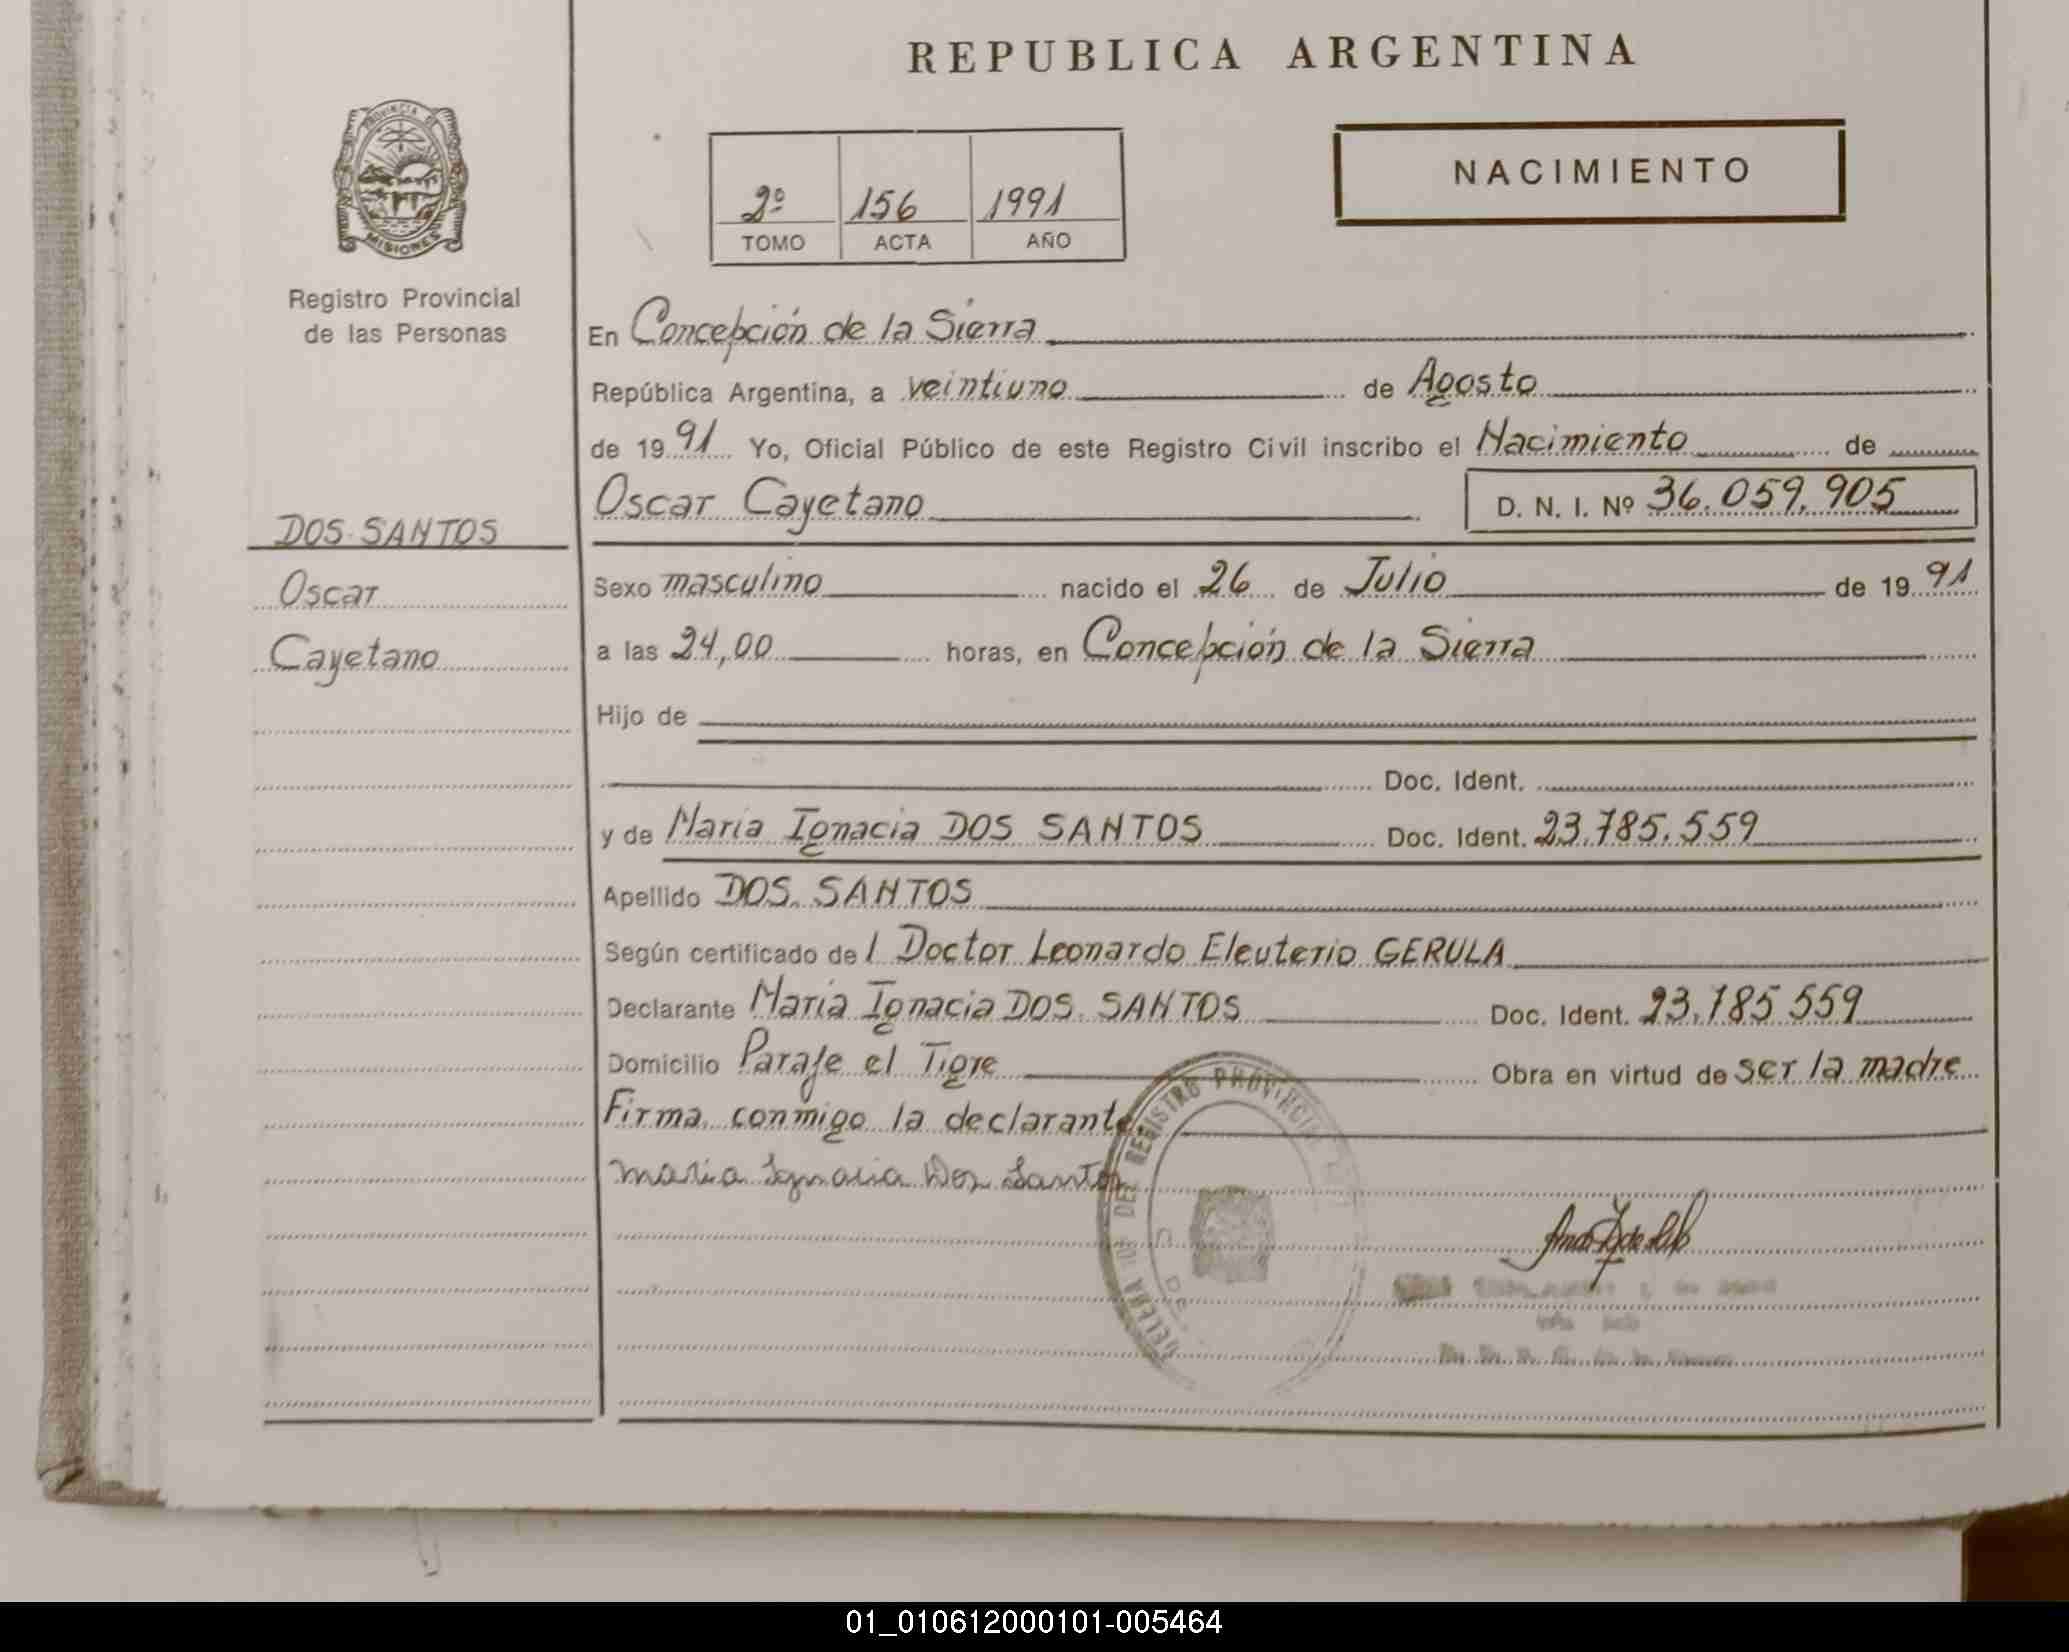 REPUBLICA ARGENTINA
PROVINCIA DE
MISIONES
Registro Provincial
de las Personas
NACIMIENTO
2º 156 1991
TOMO ACTA AÑO
En Concepción de la Sierra
República Argentina, a veintiuno de Agosto
de 1991 Yo, Oficial Público de este Registro Civil inscribo el Nacimiento de
Oscar Cayetano D. N. I. Nº 36.059.905
DOS SANTOS
Oscar
Cayetano
Sexo masculino nacido el 26 de Julio de 1991
a las 24,00 horas, en Concepción de la Sierra
Hijo de
Doc. Ident.
y de María Ignacia DOS SANTOS Doc. Ident. 23.785.559
Apellido DOS SANTOS
Según certificado del Doctor Leonardo Eleuterio GERULA
Declarante María Ignacia DOS SANTOS Doc. Ident. 23.785 559
Domicilio Paraje el Tigre Obra en virtud de ser la madre
Firma conmigo la declarante
Maria Ignacia Dos Santos
DEL REGISTRO PROVINCIAL
01_010612000101-005464